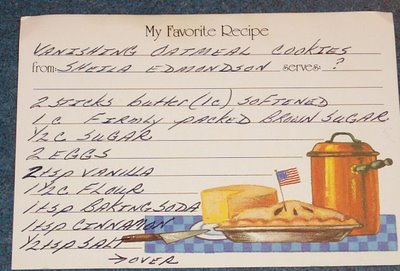 My Favorite Recipe
VANISHING OATMEAL COOKIES
from: SHEILA EDMONDSON serves: ?
2 STICKS butter (1c) SOFTENED
1 c FIRMLY PACKED BROWN SUGAR
1/2 c SUGAR
2 EGGS
2 tsp VANILLA
1 1/2 c FLOUR
1 tsp BAKING SODA
1 tsp CINNAMON
1/2 tsp SALT
→ OVER